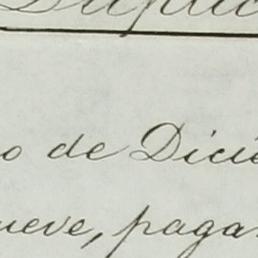 o de Dicie
ueve, paga